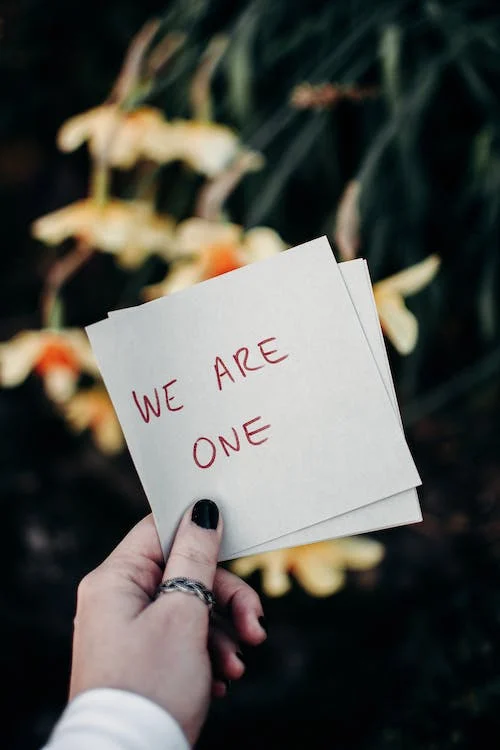 WE ARE
ONE